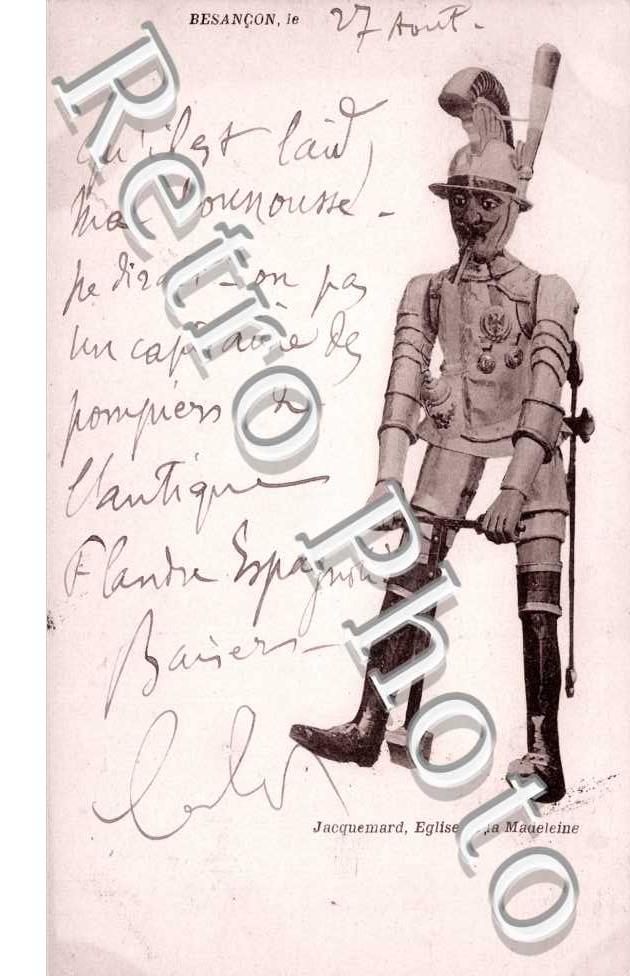 BESANÇON, le 27 Aout.
Qu'il est laid,
Ma
ne dirait-on pas
un capitaine des
pompiers de
l'antique
Flandre Espagnole
Baisers
Jacquemard, Eglise la Madeleine
Retro Photo